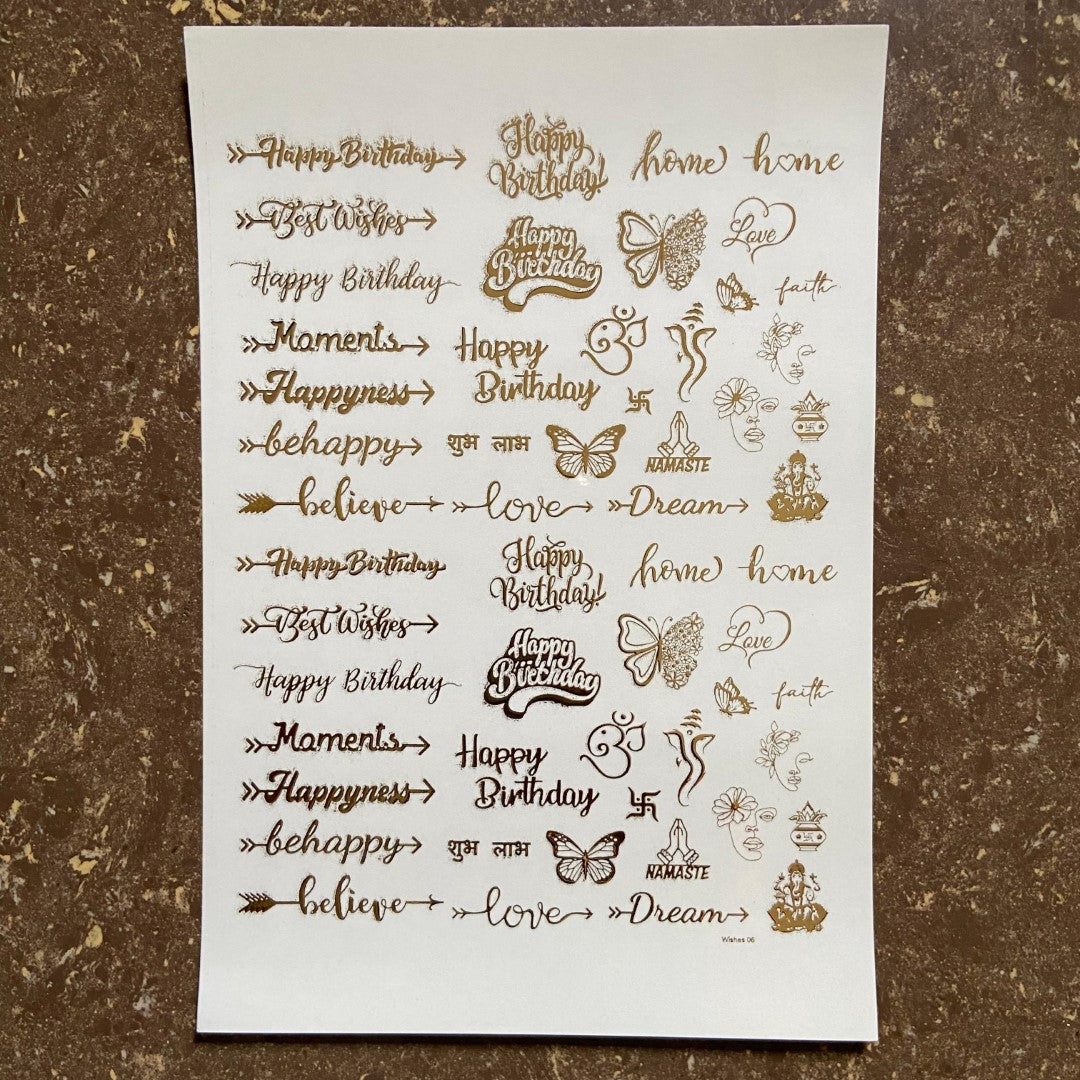 Happy Birthday
Happy
Birthday!
home
home
Best Wishes
Happy
Birthday
Love
Happy Birthday
faith
Moments
Happy
Birthday
ॐ
Happyness
behappy
शुभ लाभ
NAMASTE
believe
love
Dream
Happy Birthday
Happy
Birthday!
home
home
Best Wishes
Happy
Birthday
Love
Happy Birthday
faith
Moments
Happy
Birthday
ॐ
Happyness
behappy
शुभ लाभ
NAMASTE
believe
love
Dream
Wishes 06